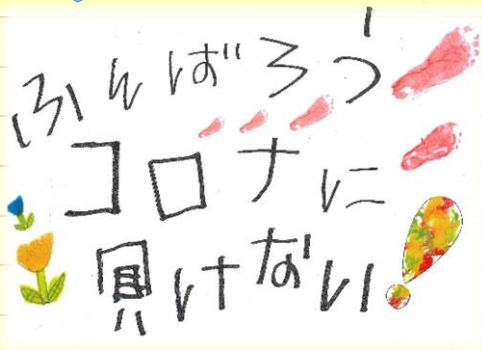 ふんばろう
コロナに
負けない!